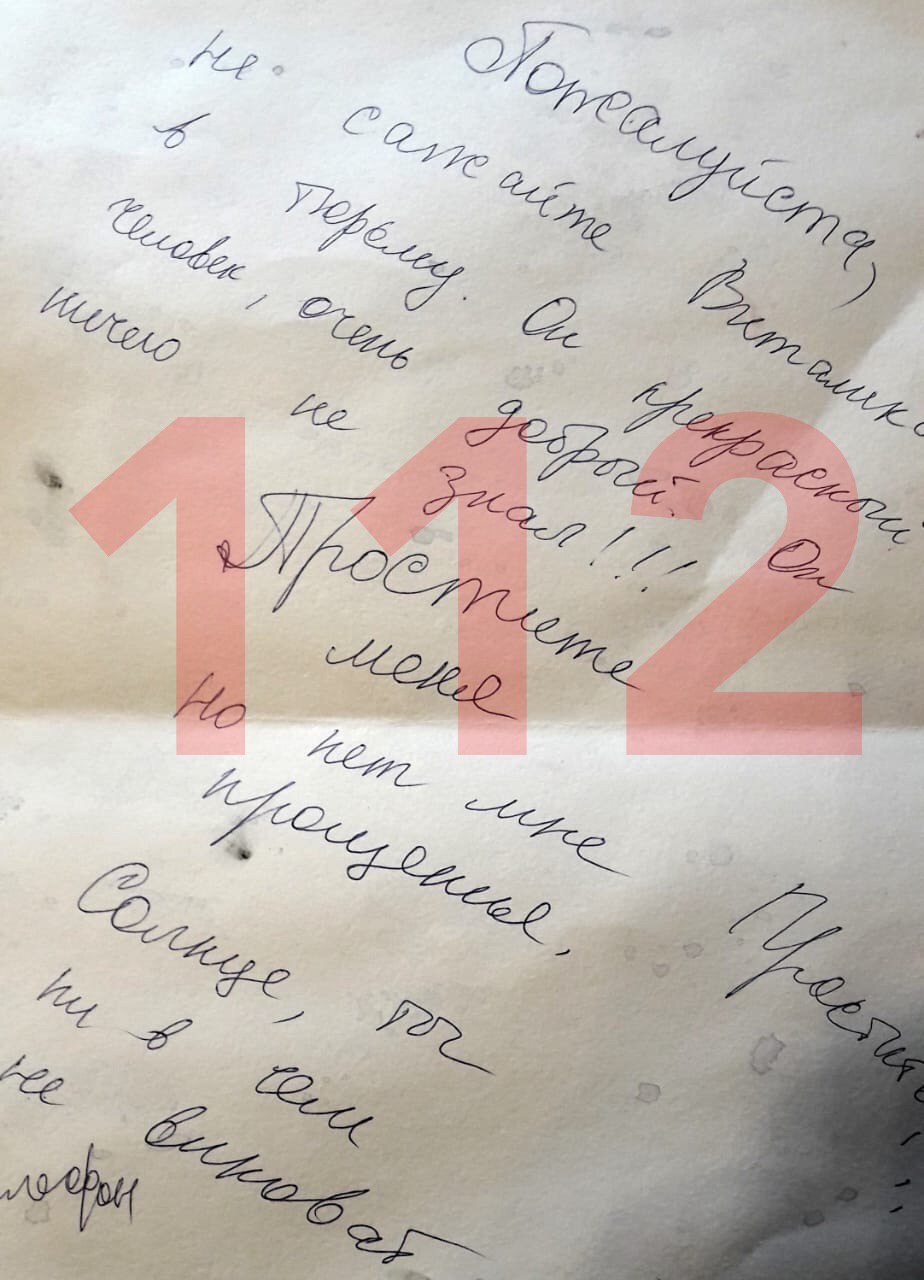 Пожалуйста,
не сажайте Виталика
в тюрьму. Он прекрасный
человек, очень добрый. Он
ничего не знал!!!
Простите
меня
но нет мне
прощенья,
Простите
Солнце, ты
ни в чем
не виноват
лефон
112